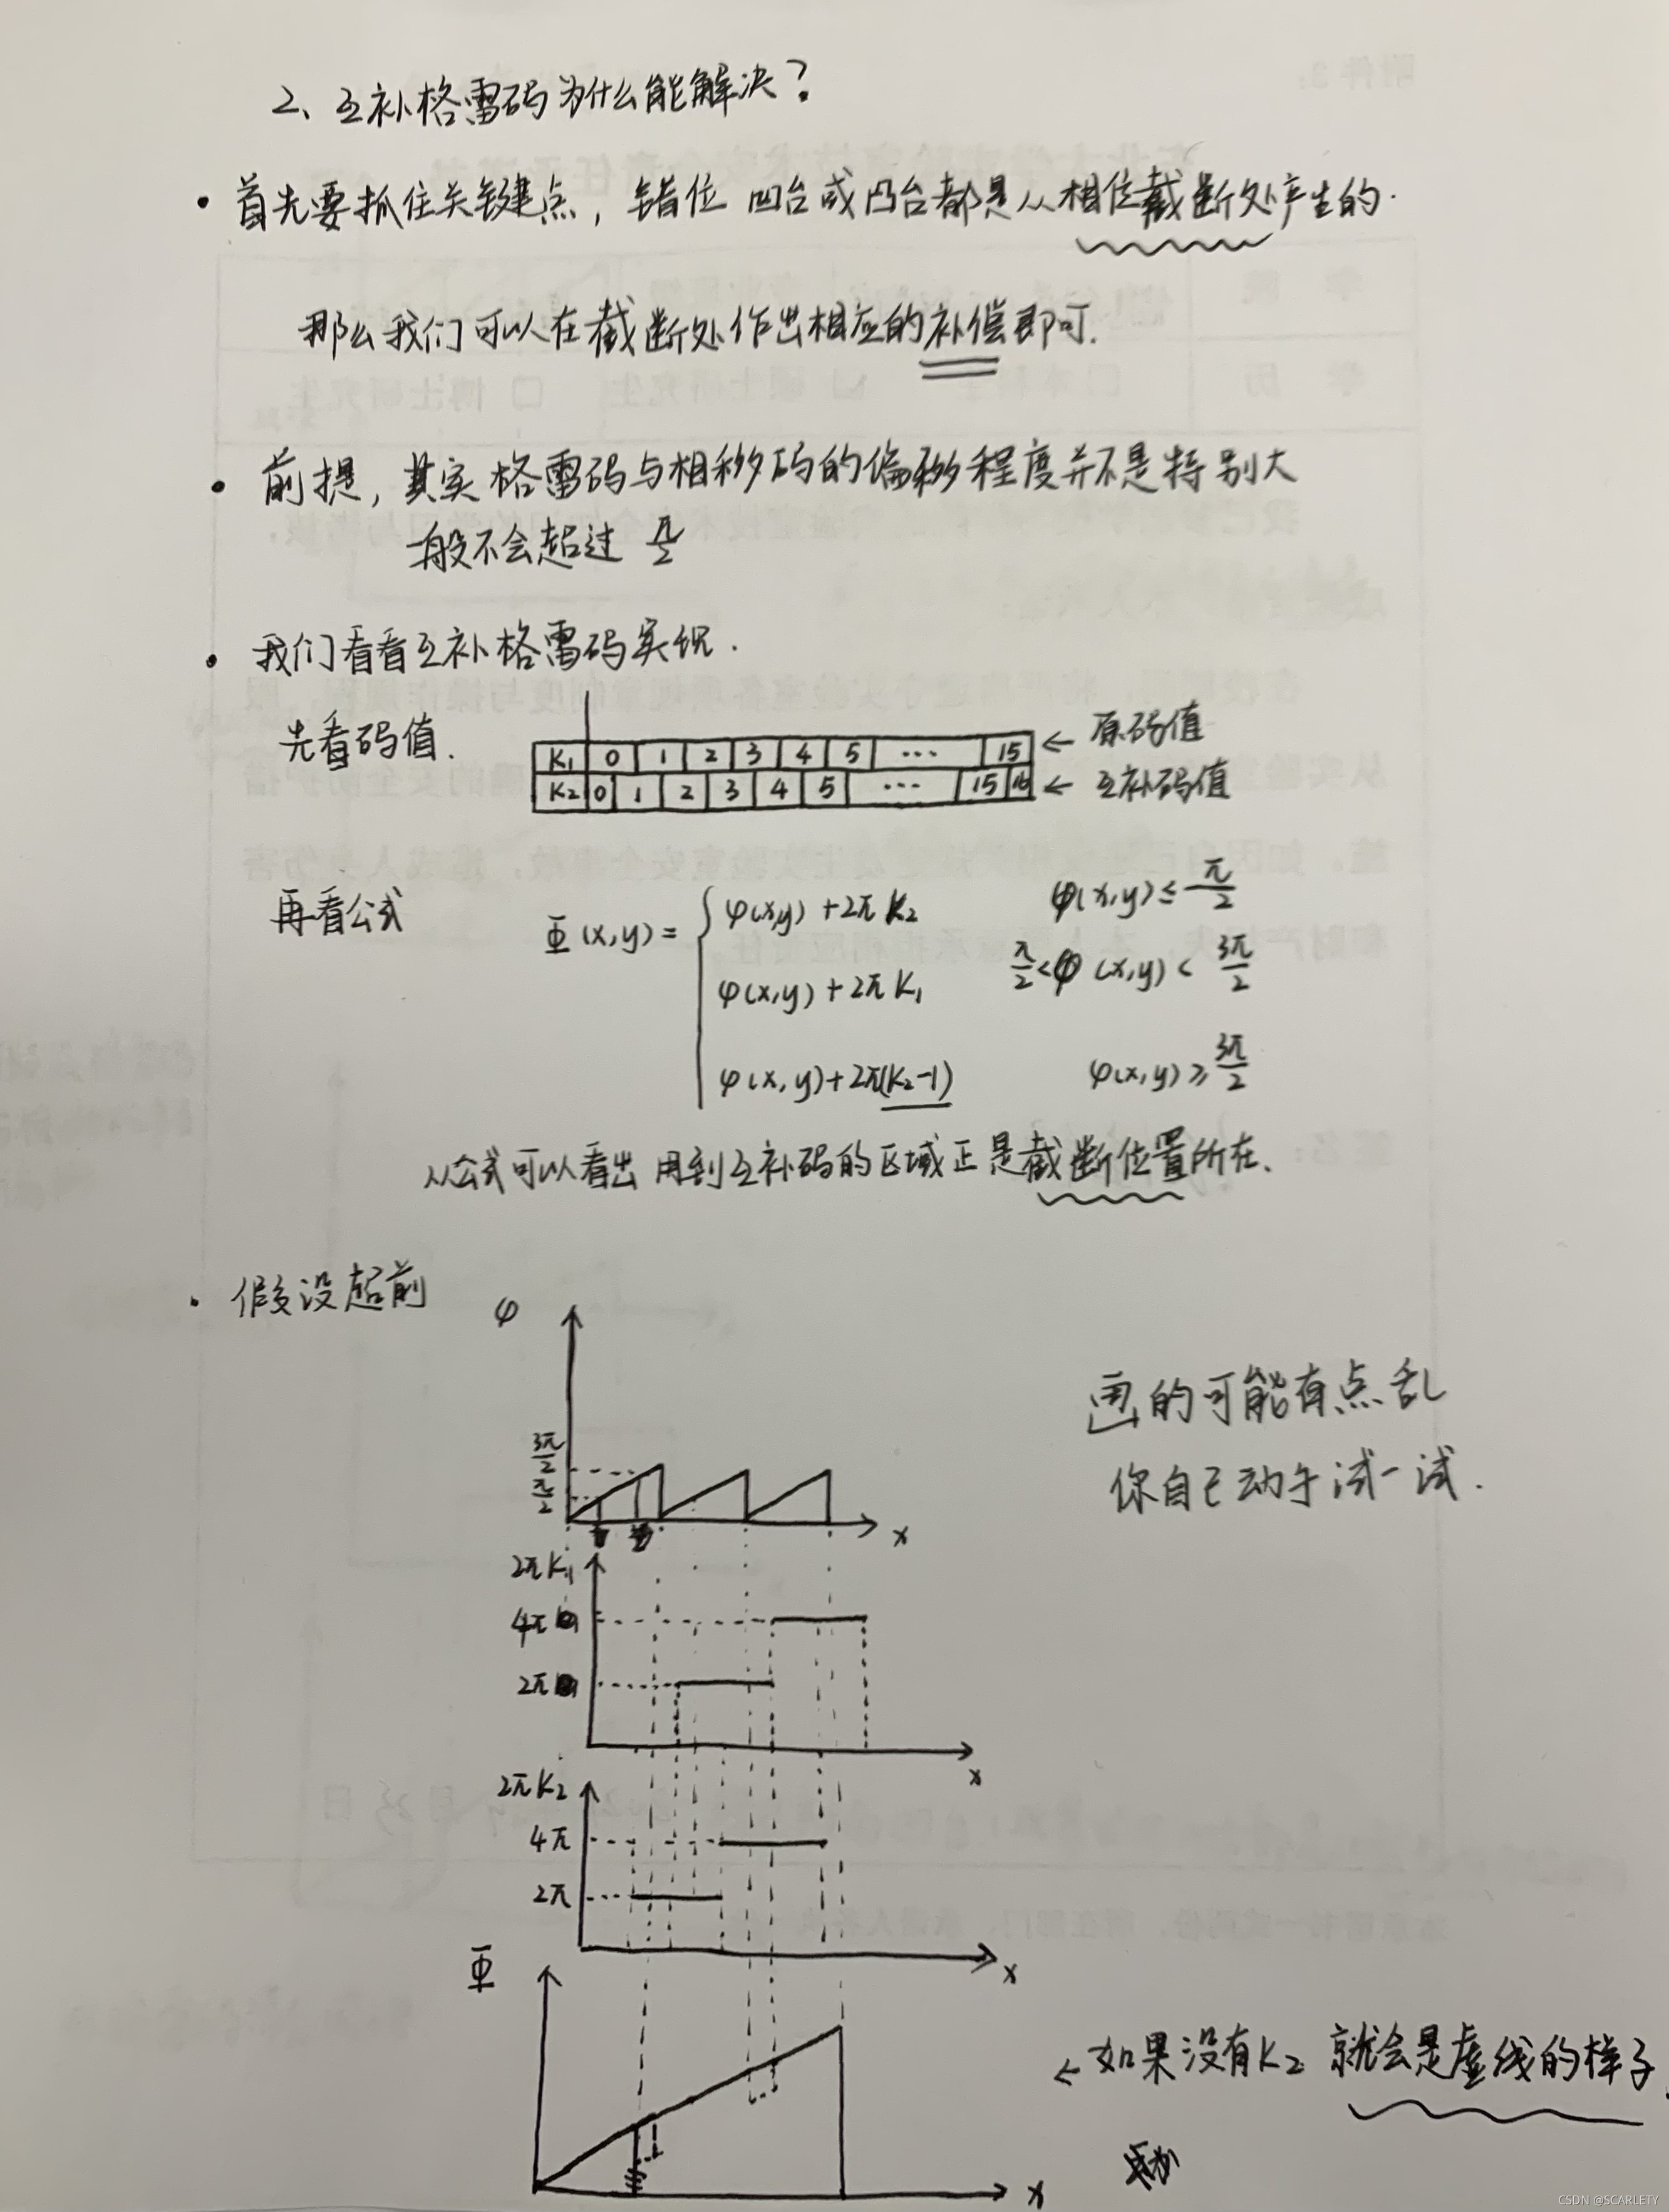 2、互补格雷码为什么能解决？
• 首先要抓住关键点，错位 凹台或凸台都是从相位截断处产生的.
那么我们可以在截断处作出相应的补偿即可.
• 前提，其实格雷码与相移码的偏移程度并不是特别大
一般不会超过 π/2
• 我们看看互补格雷码实现.
先看码值.
K1 0 1 2 3 4 5 ... 15 ← 原码值
K2 0 1 2 3 4 5 ... 15 16 ← 互补码值
再看公式
Φ(x,y) = { φ(x,y) + 2π K2 φ(x,y) ≤ π/2
φ(x,y) + 2π K1 π/2 < φ(x,y) < 3π/2
φ(x,y) + 2π(K2-1) φ(x,y) ≥ 3π/2
从公式可以看出 用到互补码的区域正是截断位置所在.
• 假设超前
φ
画的可能有点乱
你自己动手试一试.
3π/2
π/2
x
2πK1
4π
2π
x
2πK2
4π
2π
x
Φ
← 如果没有K2 就会是虚线的样子.
x
CSDN @SCARLETY